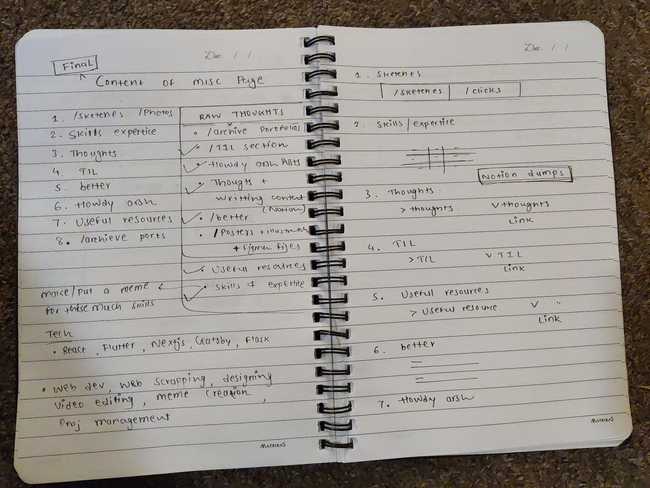 Final
Content of misc Page
1. /sketches /Photos
2. Skills expertice
3. Thoughts
4. TIL
5. better
6. Howdy arsh
7. Useful resources
8. /archieve ports
RAW THOUGHTS
/archive portfolios
/TIL section
Howdy arsh
Thougts +
writting content
(Notion)
/better
/Posters +
+ Figma files
Useful resources
Skills & expertise
make/put a meme
for these much skills
Tech
React, Flutter, Nextjs, Gatsby, Flask
Web dev, Web scrapping, designing
Video editing, meme creation,
Proj management
MIDRIENS
Date / /
1. Sketches
/sketches /clicks
2. Skills/expertice
Notion dumps
3. Thoughts
> thoughts V thoughts
Link
4. TIL
> TIL V TIL
Link
5. Useful resources
> Useful resource V "
Link
6. better
7. Howdy arsh